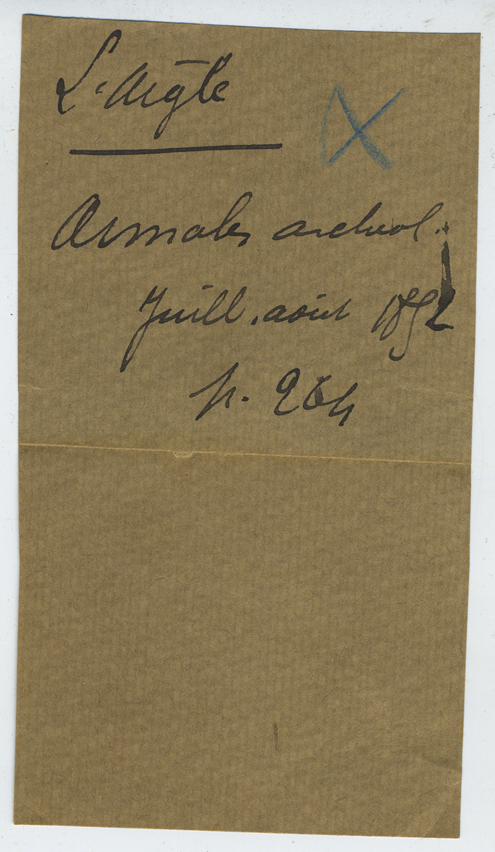 L'Aigle
Annales archéol.
Juill. août 1852
p. 264